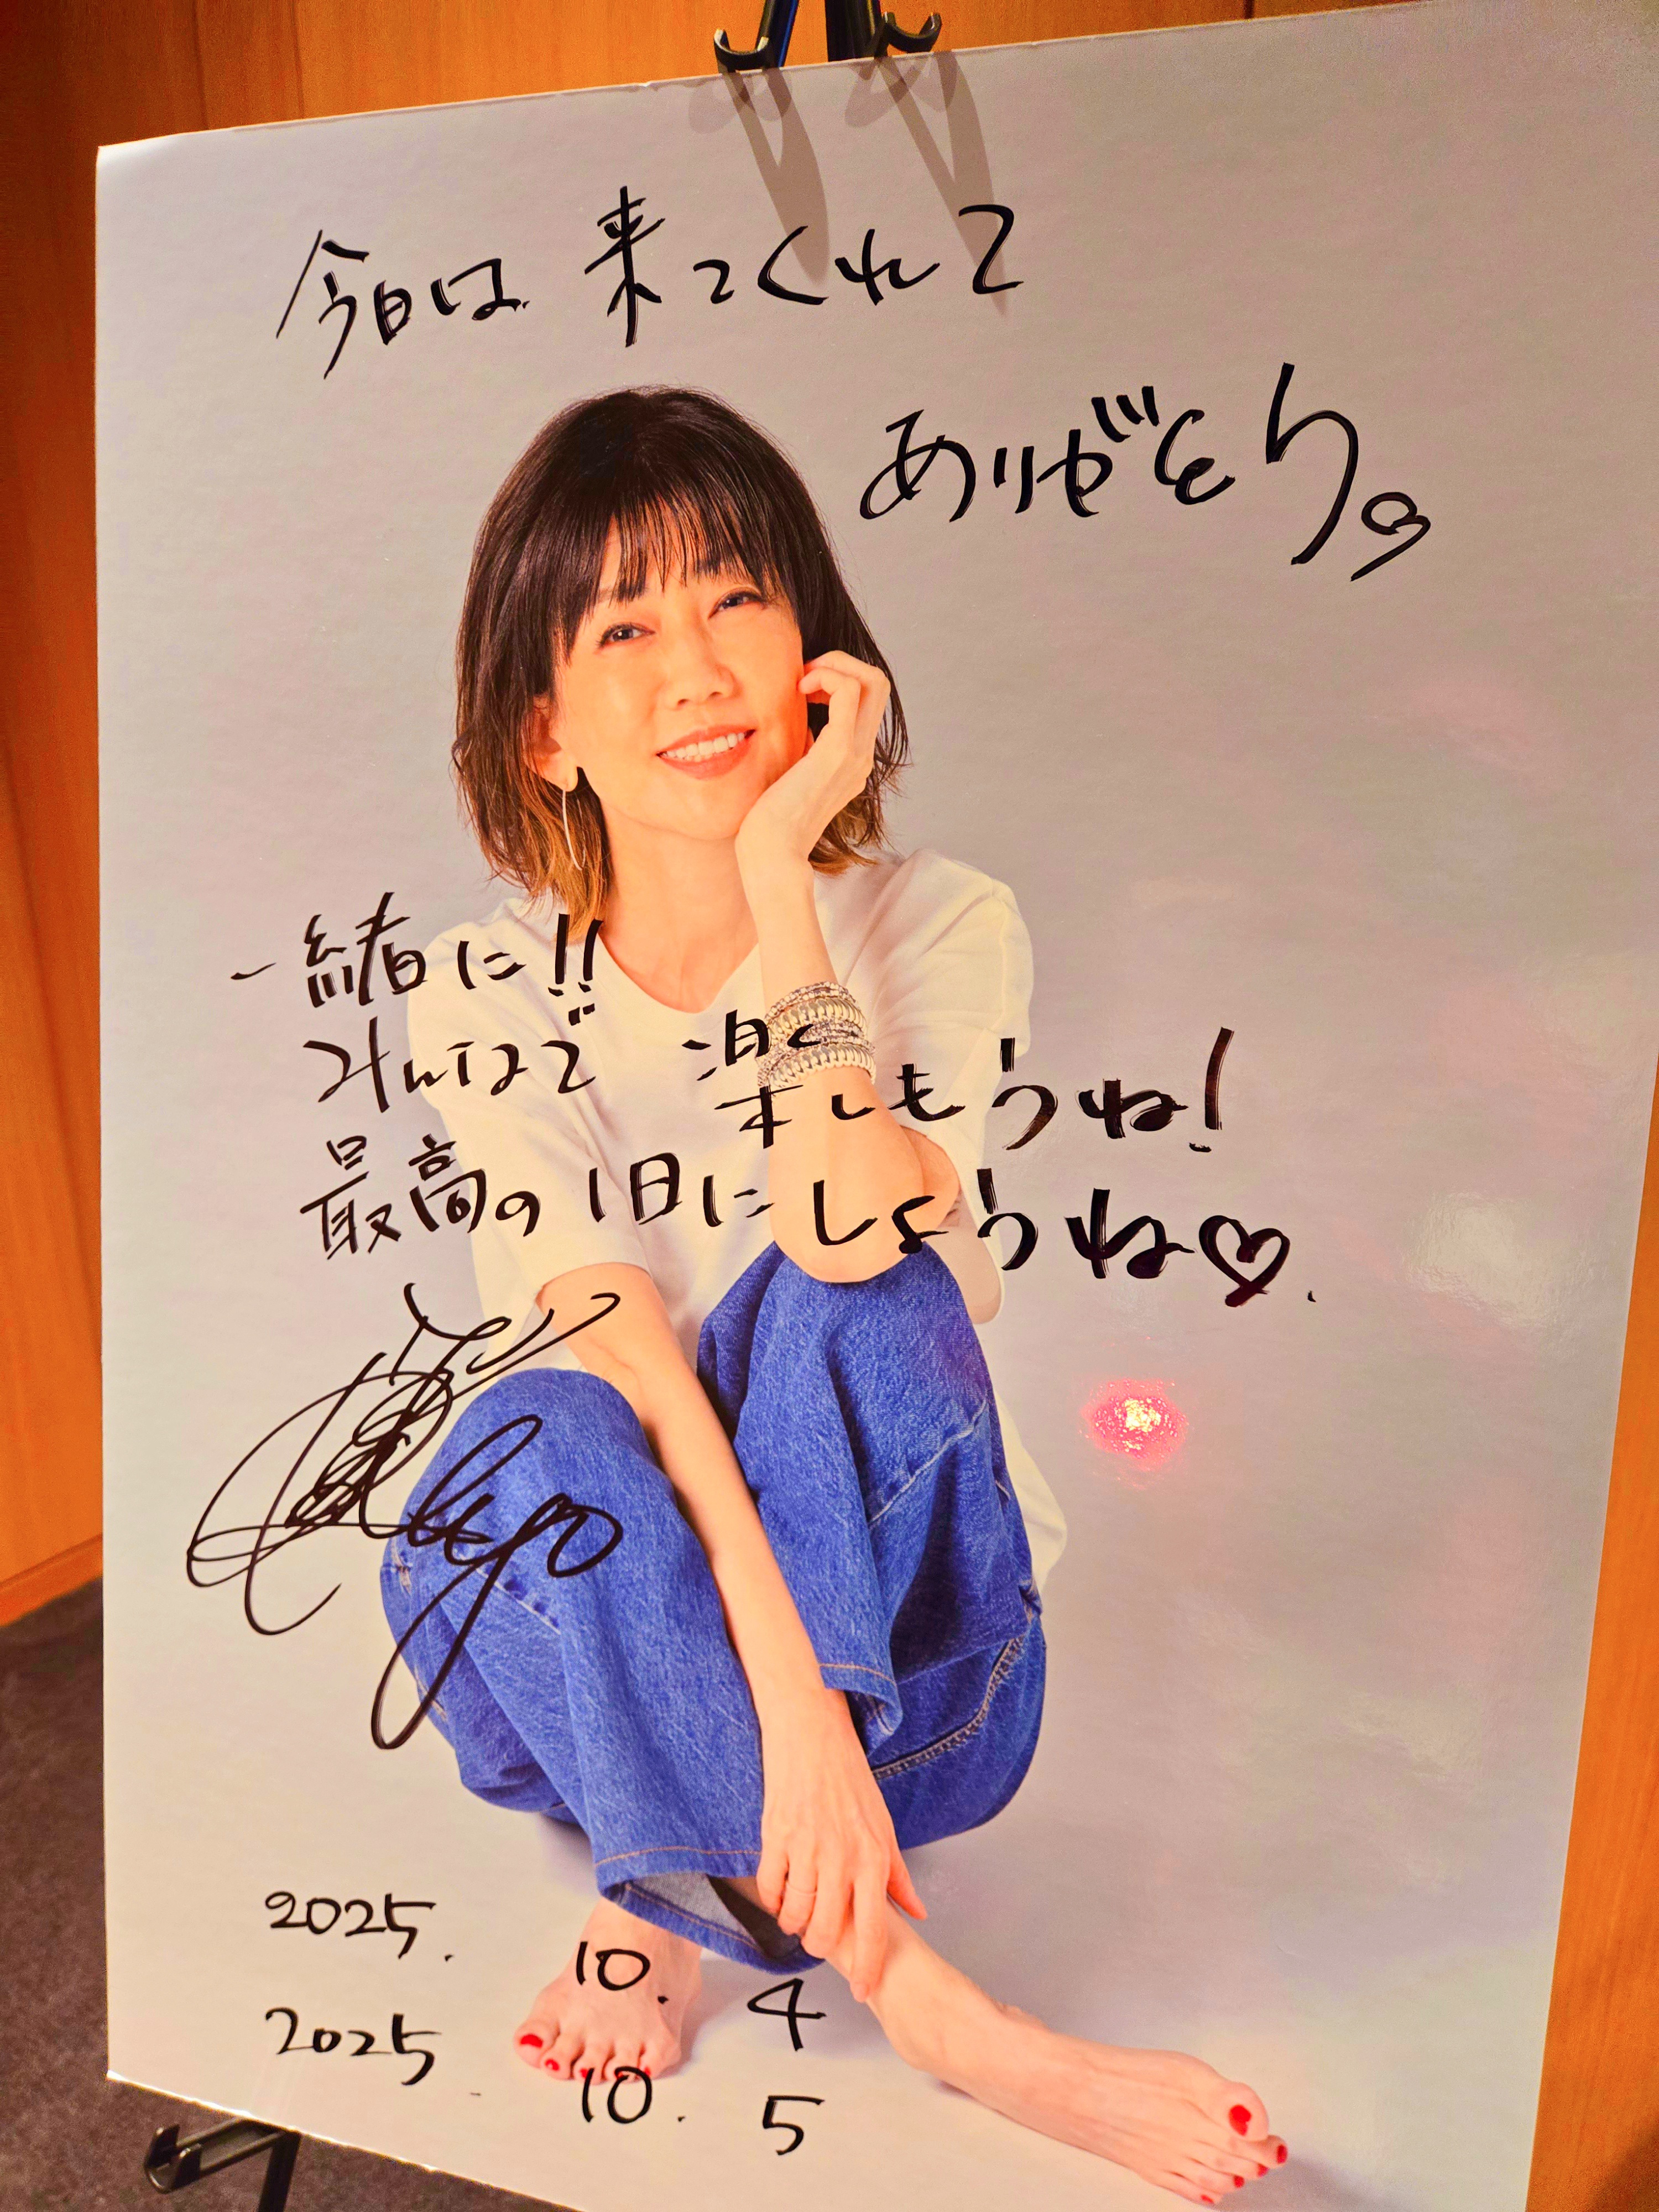 今日は 来てくれて
ありがとう♡
一緒に!!
みんなで 楽しもうね!
最高の1日にしようね♡.
2025. 10. 4
2025. 10. 5